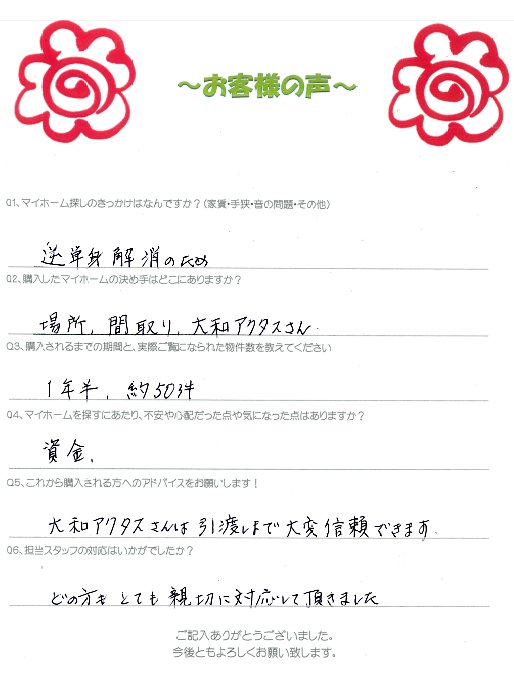 ～お客様の声～
Q1、マイホーム探しのきっかけはなんですか？（家賃・手狭・音の問題・その他）
逆単身解消のため
Q2、購入したマイホームの決め手はどこにありますか？
場所，間取り，大和アクタスさん．
Q3、購入されるまでの期間と、実際ご覧になられた物件数を教えてください
1年半，約50件
Q4、マイホームを探すにあたり、不安や心配だった点や気になった点はありますか？
資金，
Q5、これから購入される方へのアドバイスをお願いします！
大和アクタスさんは引渡しまで大変信頼できます．
Q6、担当スタッフの対応はいかがでしたか？
どの方もとても親切に対応して頂きました
ご記入ありがとうございました。
今後ともよろしくお願い致します。